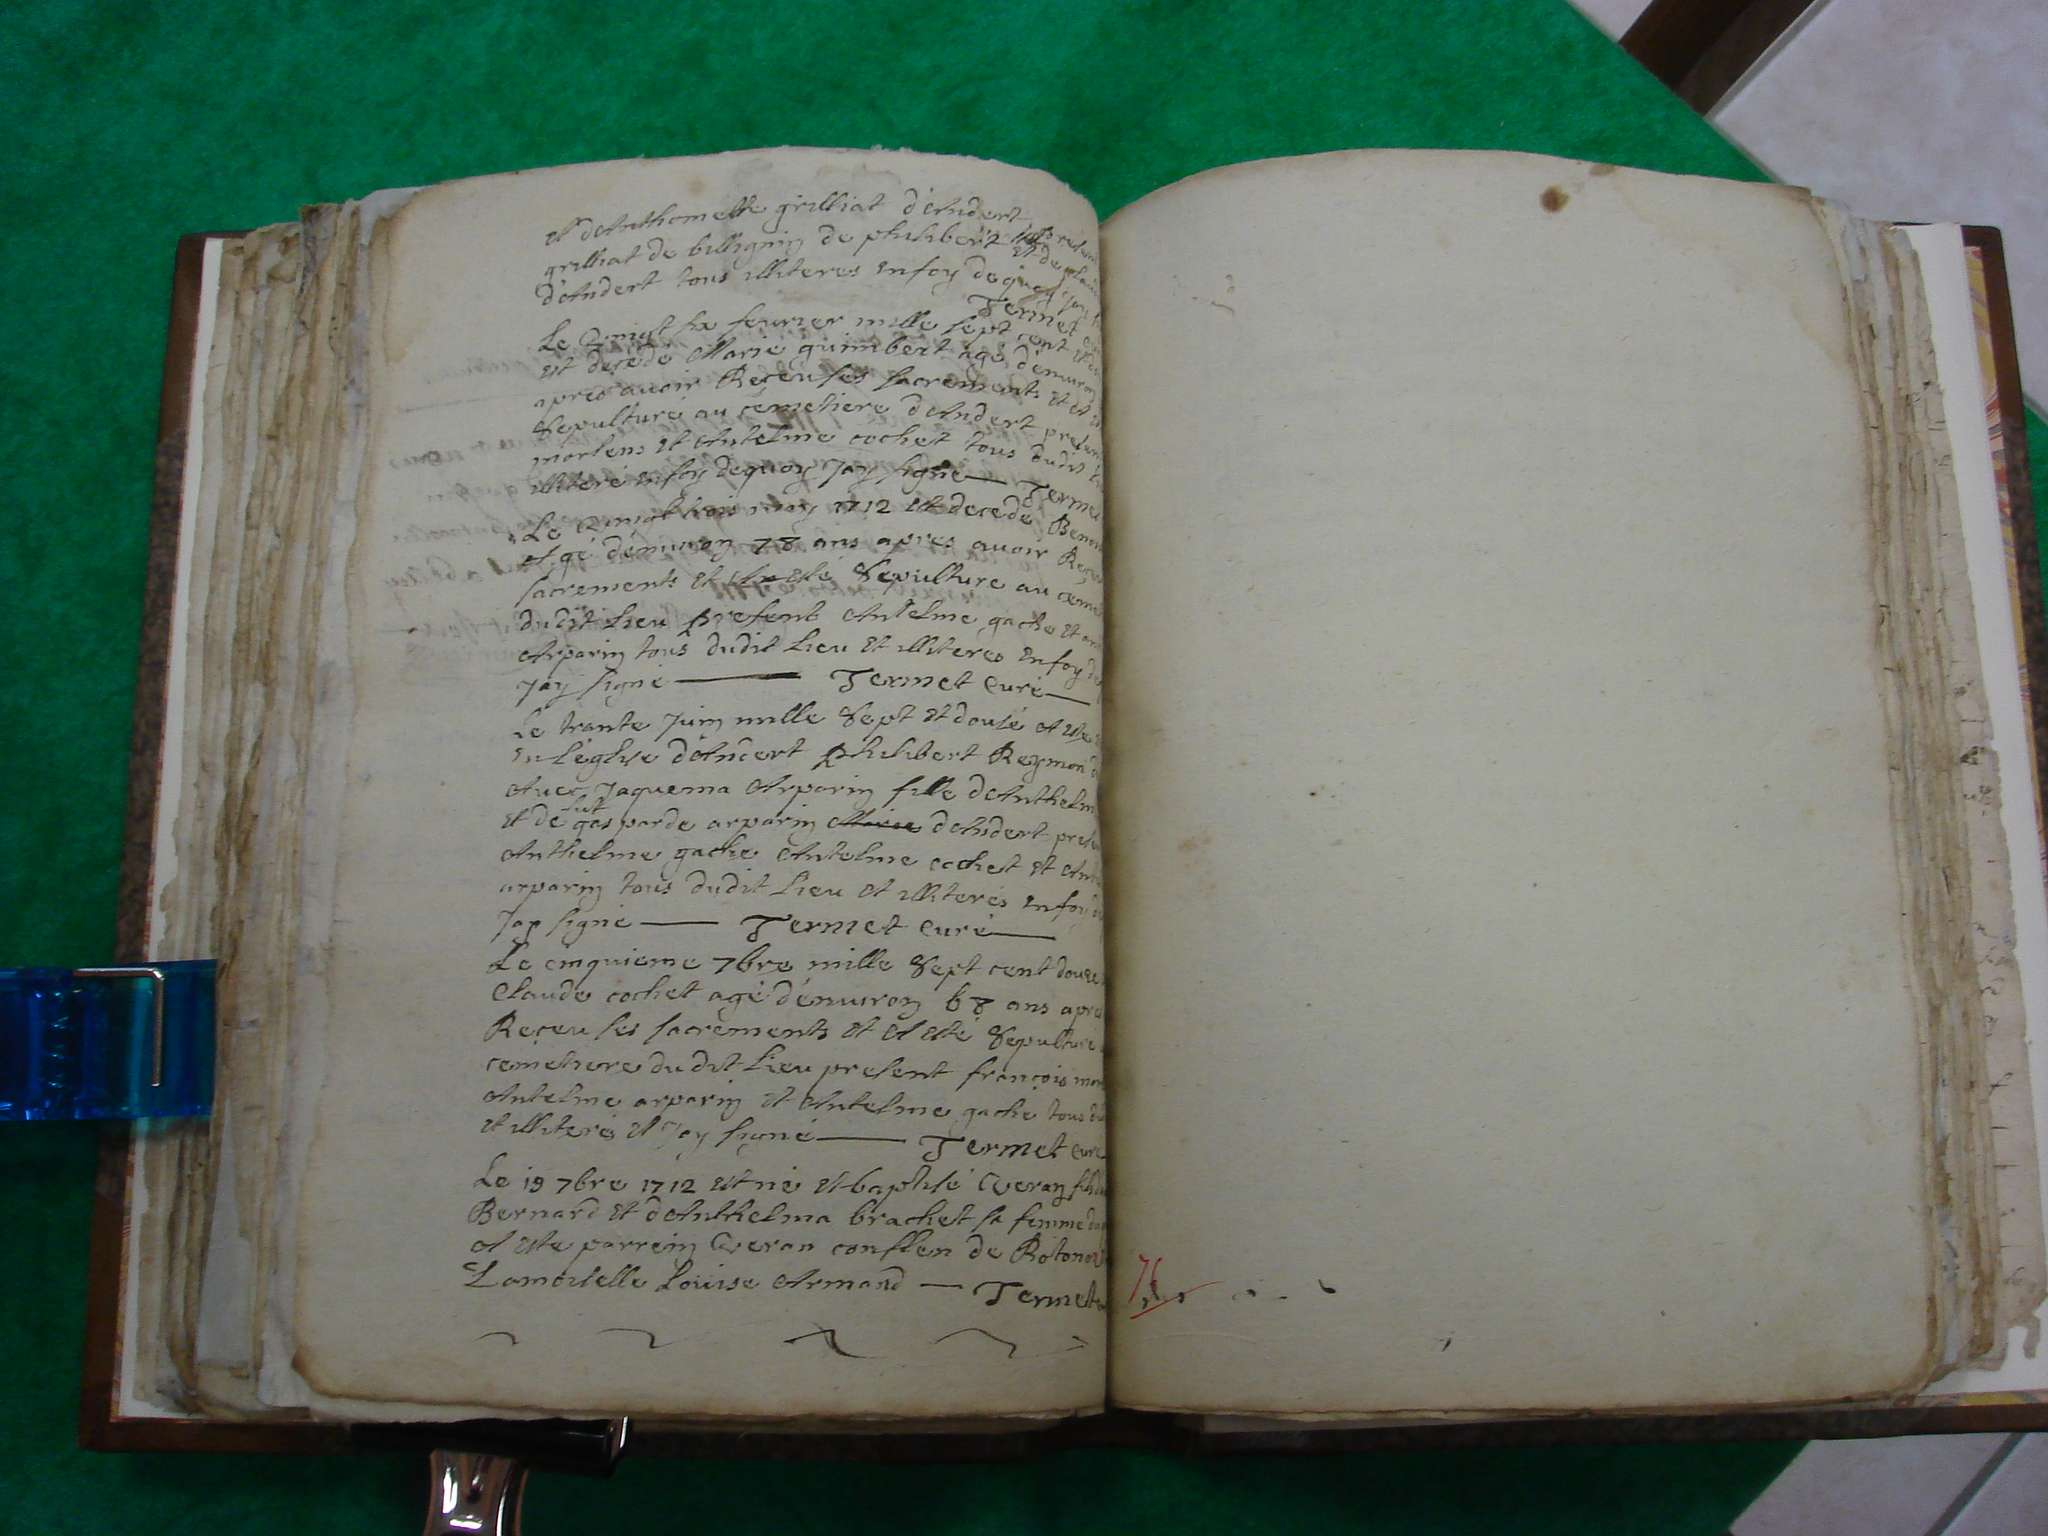 et d'Anthomette grilliat d'Andert
grilliat de billignin de philibert
d'Andert tous illiteres en foy de quoy j'ay
Termet
Le vingt six feurier mille sept cent et
est decede Marie guinbert agé d'enuiron
apres auoir Reçeu ses sacrements et at
Sepulturé au cemetiere d'Andert present
morlens et Antelme cochet tous dudit
illiteré en foy dequoy Jay signé Termet
Le vingt trois may 1712 est decede Benoi
Agé d'enuiron 78 ans apres auoir Reçeu
sacrements et esté Sepulture au ceme
dudit Lieu present Antelme gache et
Arparin tous dudit Lieu et illiteres en foy de
Jay signé Termet Curé
Le trante Juin mille Sept et douse at este
en l'eglise d'Andert philibert Reymon
Auec Jaquema Arparin fille d'Anthelm
et de fut gasparde arparin d'Andert presen
Anthelme gache Antelme cochet et
arparin tous dudit Lieu et illiterés en foy de
Jay signé Termet Curé
Le cinquieme 7bre mille Sept cent douze
Claude cochet agé d'enuiron 68 ans apres
Reçeu ses sacrements et at esté Sepulturé
cemetiere dudit Lieu present françois mor
Antelme arparin et Antelme gache tous du
et illiterés et Jay signé Termet Curé
Le 19 7bre 1712 est né et baptisé Veran fils
Bernard et d'Anthelma brachet sa femme
at este parrein Veran conssen de Rotonod
Lamoiselle Louise Armand Termet